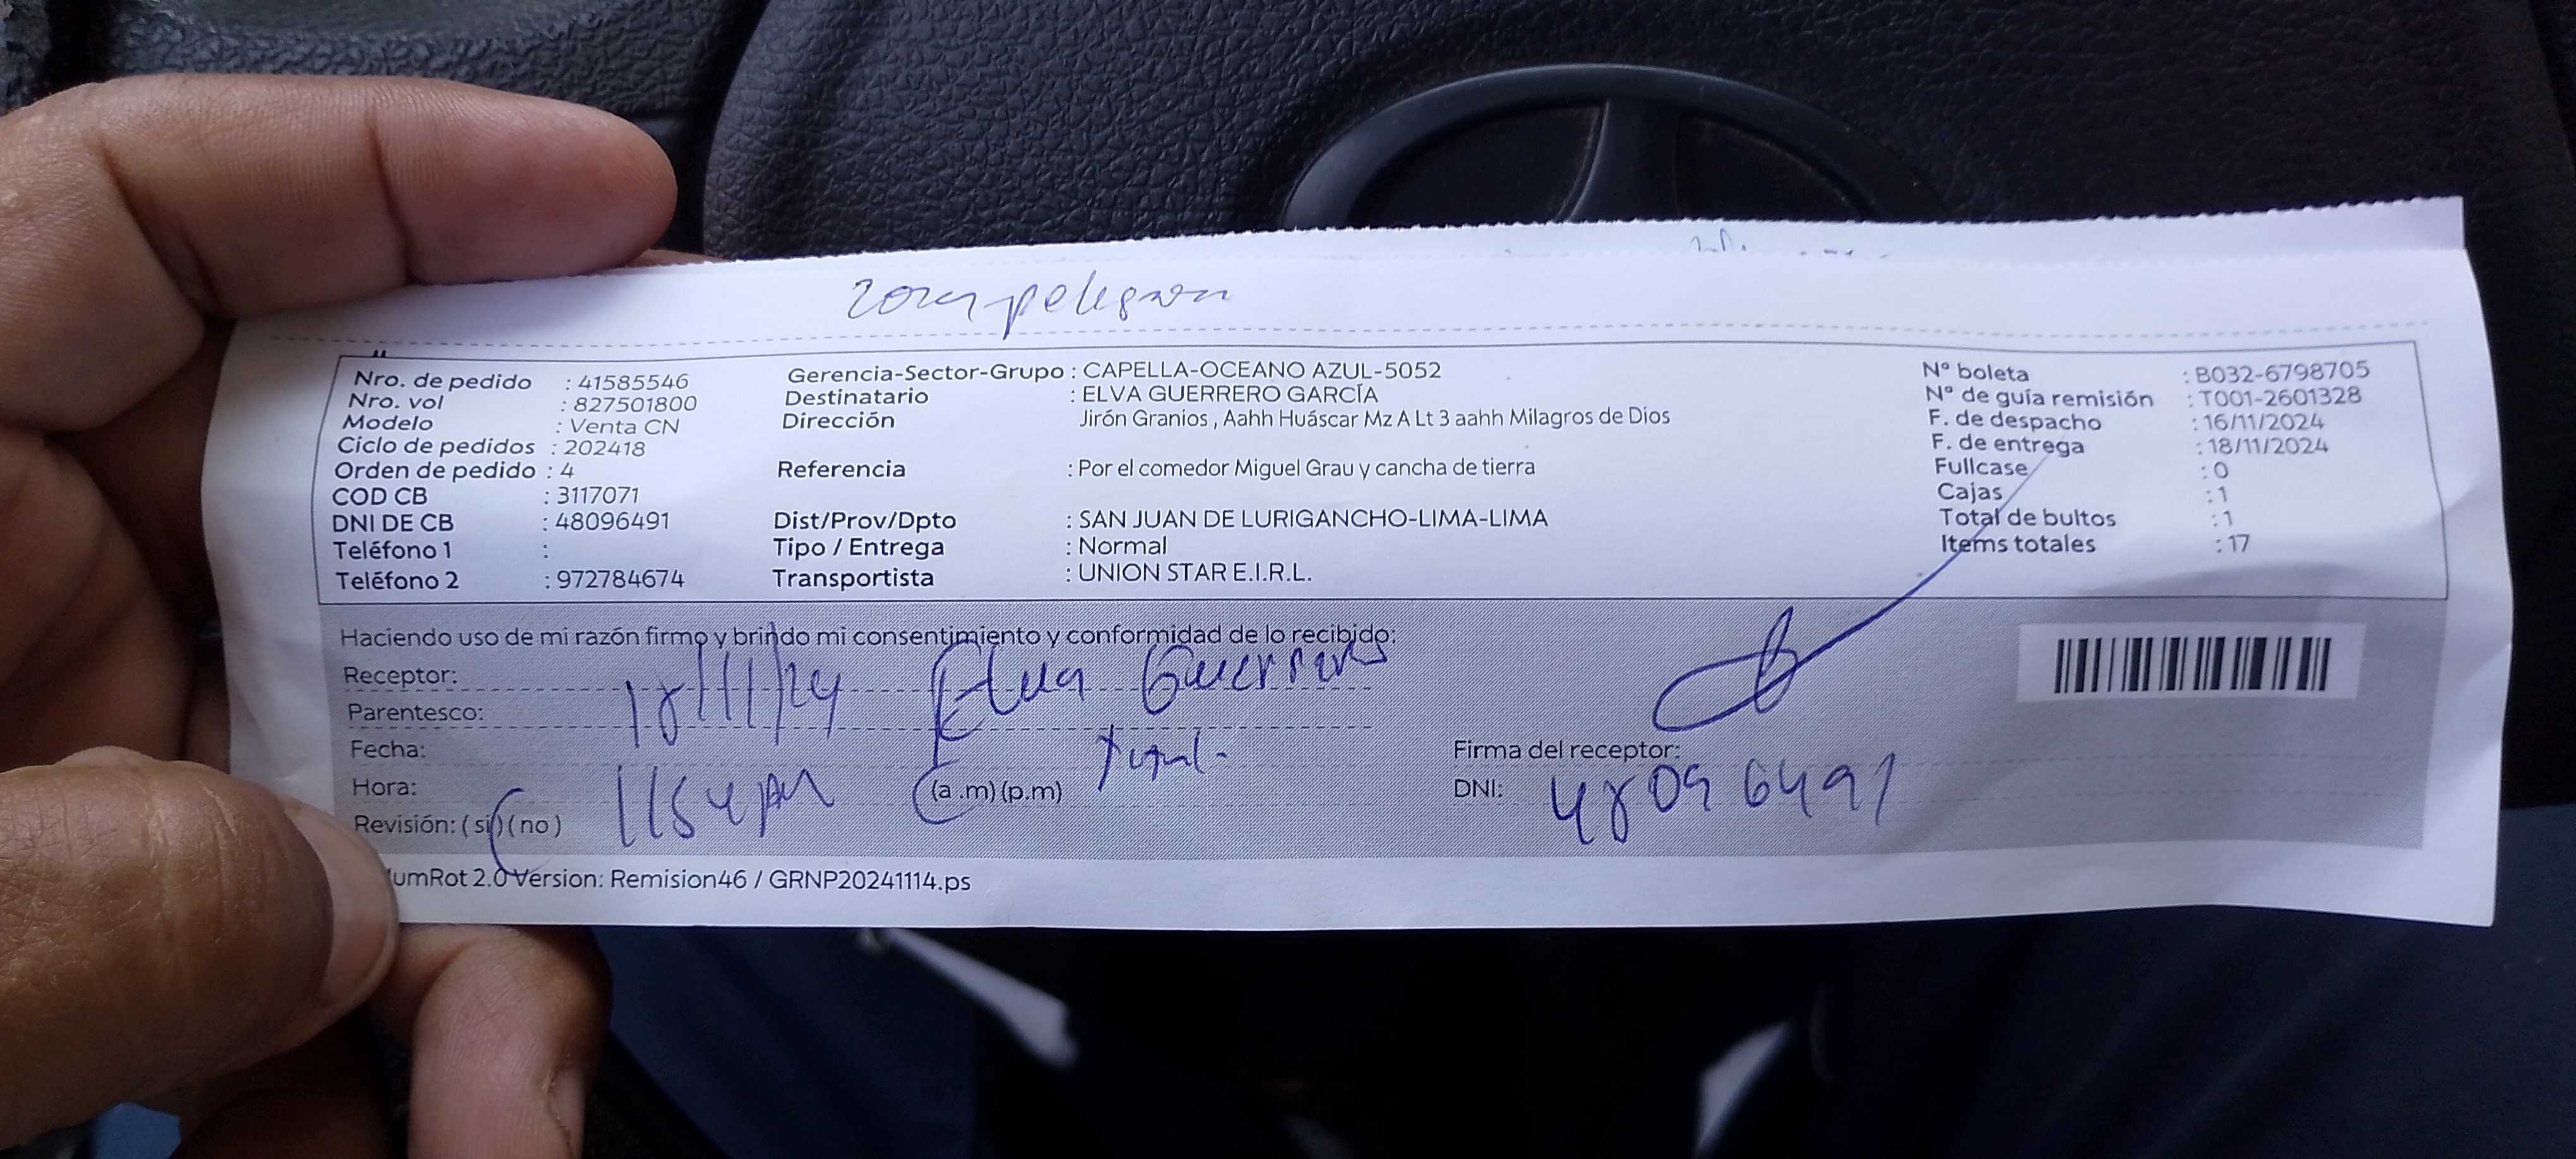 Zona peligrosa
Nro. de pedido : 41585546
Nro. vol : 827501800
Modelo : Venta CN
Ciclo de pedidos : 202418
Orden de pedido : 4
COD CB : 3117071
DNI DE CB : 48096491
Teléfono 1 :
Teléfono 2 : 972784674
Gerencia-Sector-Grupo : CAPELLA-OCEANO AZUL-5052
Destinatario : ELVA GUERRERO GARCÍA
Dirección Jirón Granios , Aahh Huáscar Mz A Lt 3 aahh Milagros de Dios
Referencia : Por el comedor Miguel Grau y cancha de tierra
Dist/Prov/Dpto : SAN JUAN DE LURIGANCHO-LIMA-LIMA
Tipo / Entrega : Normal
Transportista : UNION STAR E.I.R.L.
Nº boleta : B032-6798705
Nº de guía remisión : T001-2601328
F. de despacho : 16/11/2024
F. de entrega : 18/11/2024
Fullcase : 0
Cajas : 1
Total de bultos : 1
Items totales : 17
Haciendo uso de mi razón firmo y brindo mi consentimiento y conformidad de lo recibido:
Receptor: 18/11/24 Elva Guerrero
Parentesco:
Fecha:
Hora: 1154 pm (a .m) (p.m)
Revisión: ( si ) ( no )
Firma del receptor:
DNI: 48096491
umRot 2.0 Version: Remision46 / GRNP20241114.ps